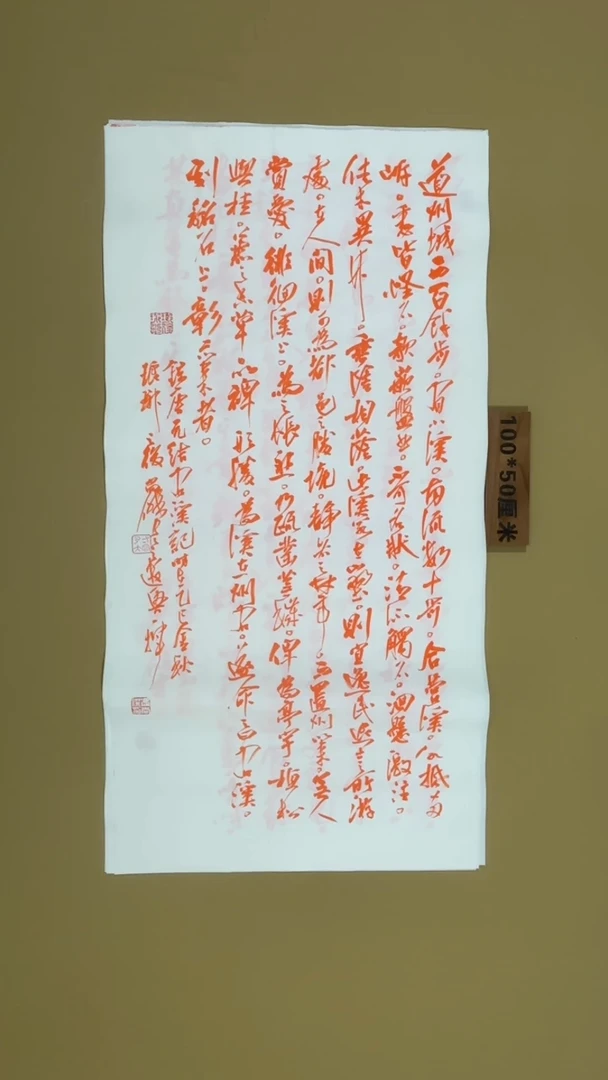 道州城西百餘步。有小溪。南流數十步。合營溪。水抵兩
岸。悉皆怪石。欹嵌盤屈。不可名狀。清流觸石。洄懸激注。
佳木異竹。垂陰相蔭。此溪若在山野。則宜逸民退士之所游
處。在人間。則可為都邑之勝境。靜者之林亭。而置州以來。無人
賞愛。徘徊溪上。為之悵然。乃疏鑿蕪穢。俾為亭宇。植松
與桂。兼之香草。以裨形勝。為溪在州右。遂命之曰右溪。
刻銘石上。彰示來者。
錄唐元結右溪記時乙巳金秋
琅琊
100*50厘米